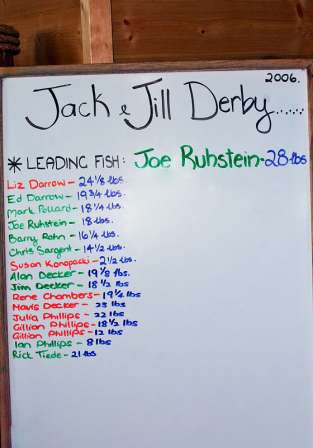 2006.
Jack & Jill Derby......
* LEADING FISH: Joe Ruhstein-28lbs
Liz Darrow - 24 1/8 lbs.
Ed Darrow - 19 3/4 lbs.
Mark Pollard - 18 1/4 lbs.
Joe Ruhstein - 18 lbs.
Barry Rohn - 16 1/4 lbs.
Chris Sargent - 14 1/2 lbs.
Susan Konopacki - 2 1/2 lbs.
Alan Decker - 19 7/8 lbs.
Jim Decker - 18 1/2 lbs
Rene Chambers - 19 1/4 lbs
Mavis Decker - 23 lbs
Julia Phillips - 22 lbs
Gillian Phillips - 18 1/2 lbs
Gillian Phillips - 12 lbs
Ian Phillips - 8 lbs
Rick Tiede - 21 lbs